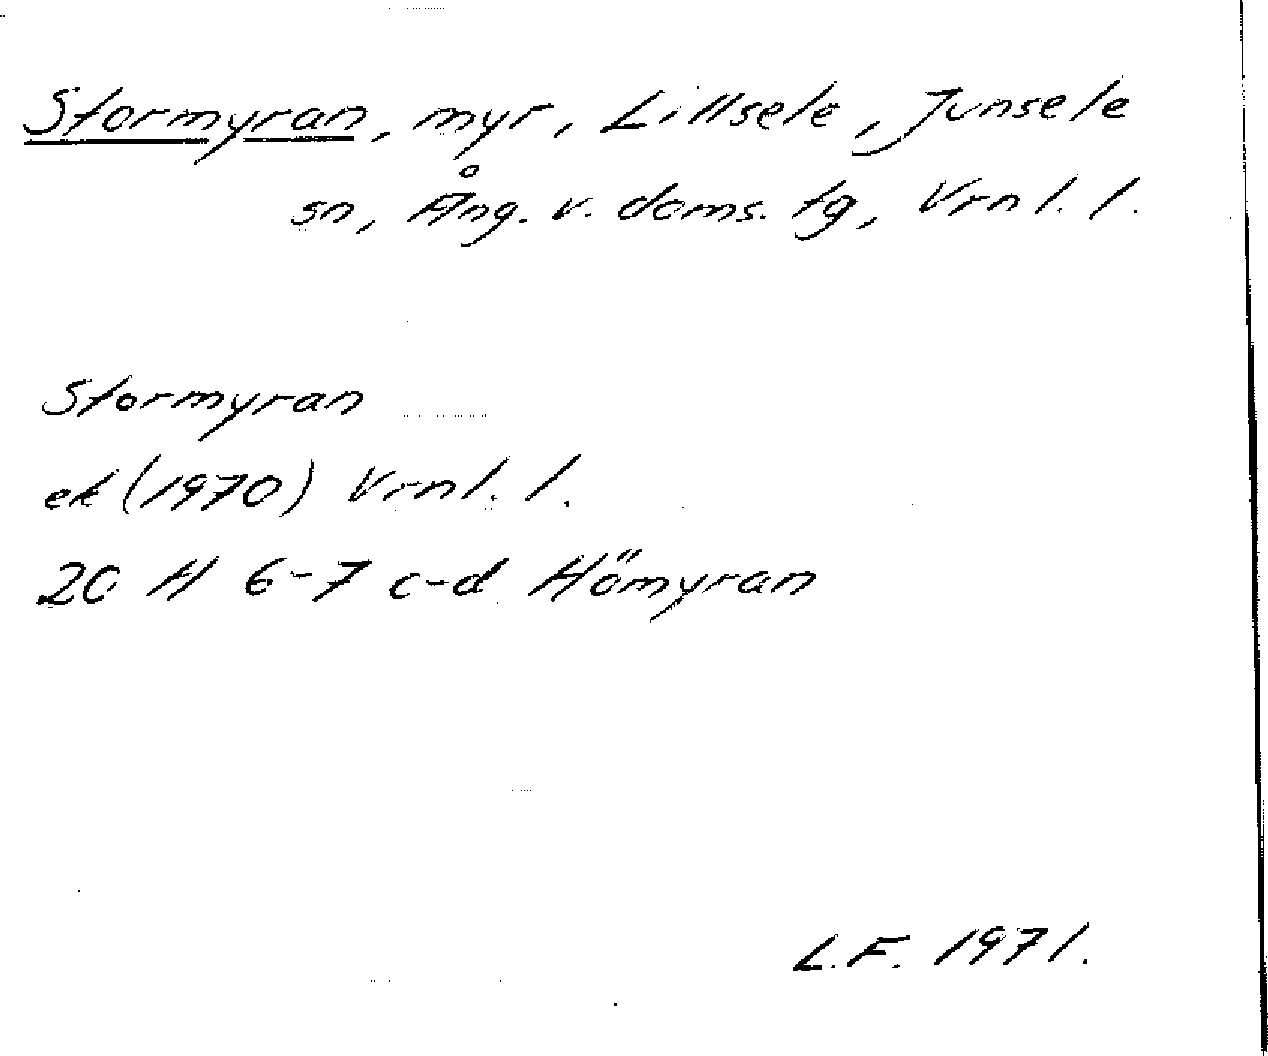 Stormyran, myr, Lillsele, Junsele
sn, Ång. v. doms. tg, Vrnl. l.
Stormyran
ek (1970) Vrnl. l.
20 H 6-7 c-d Hömyran
L.F. 1971.